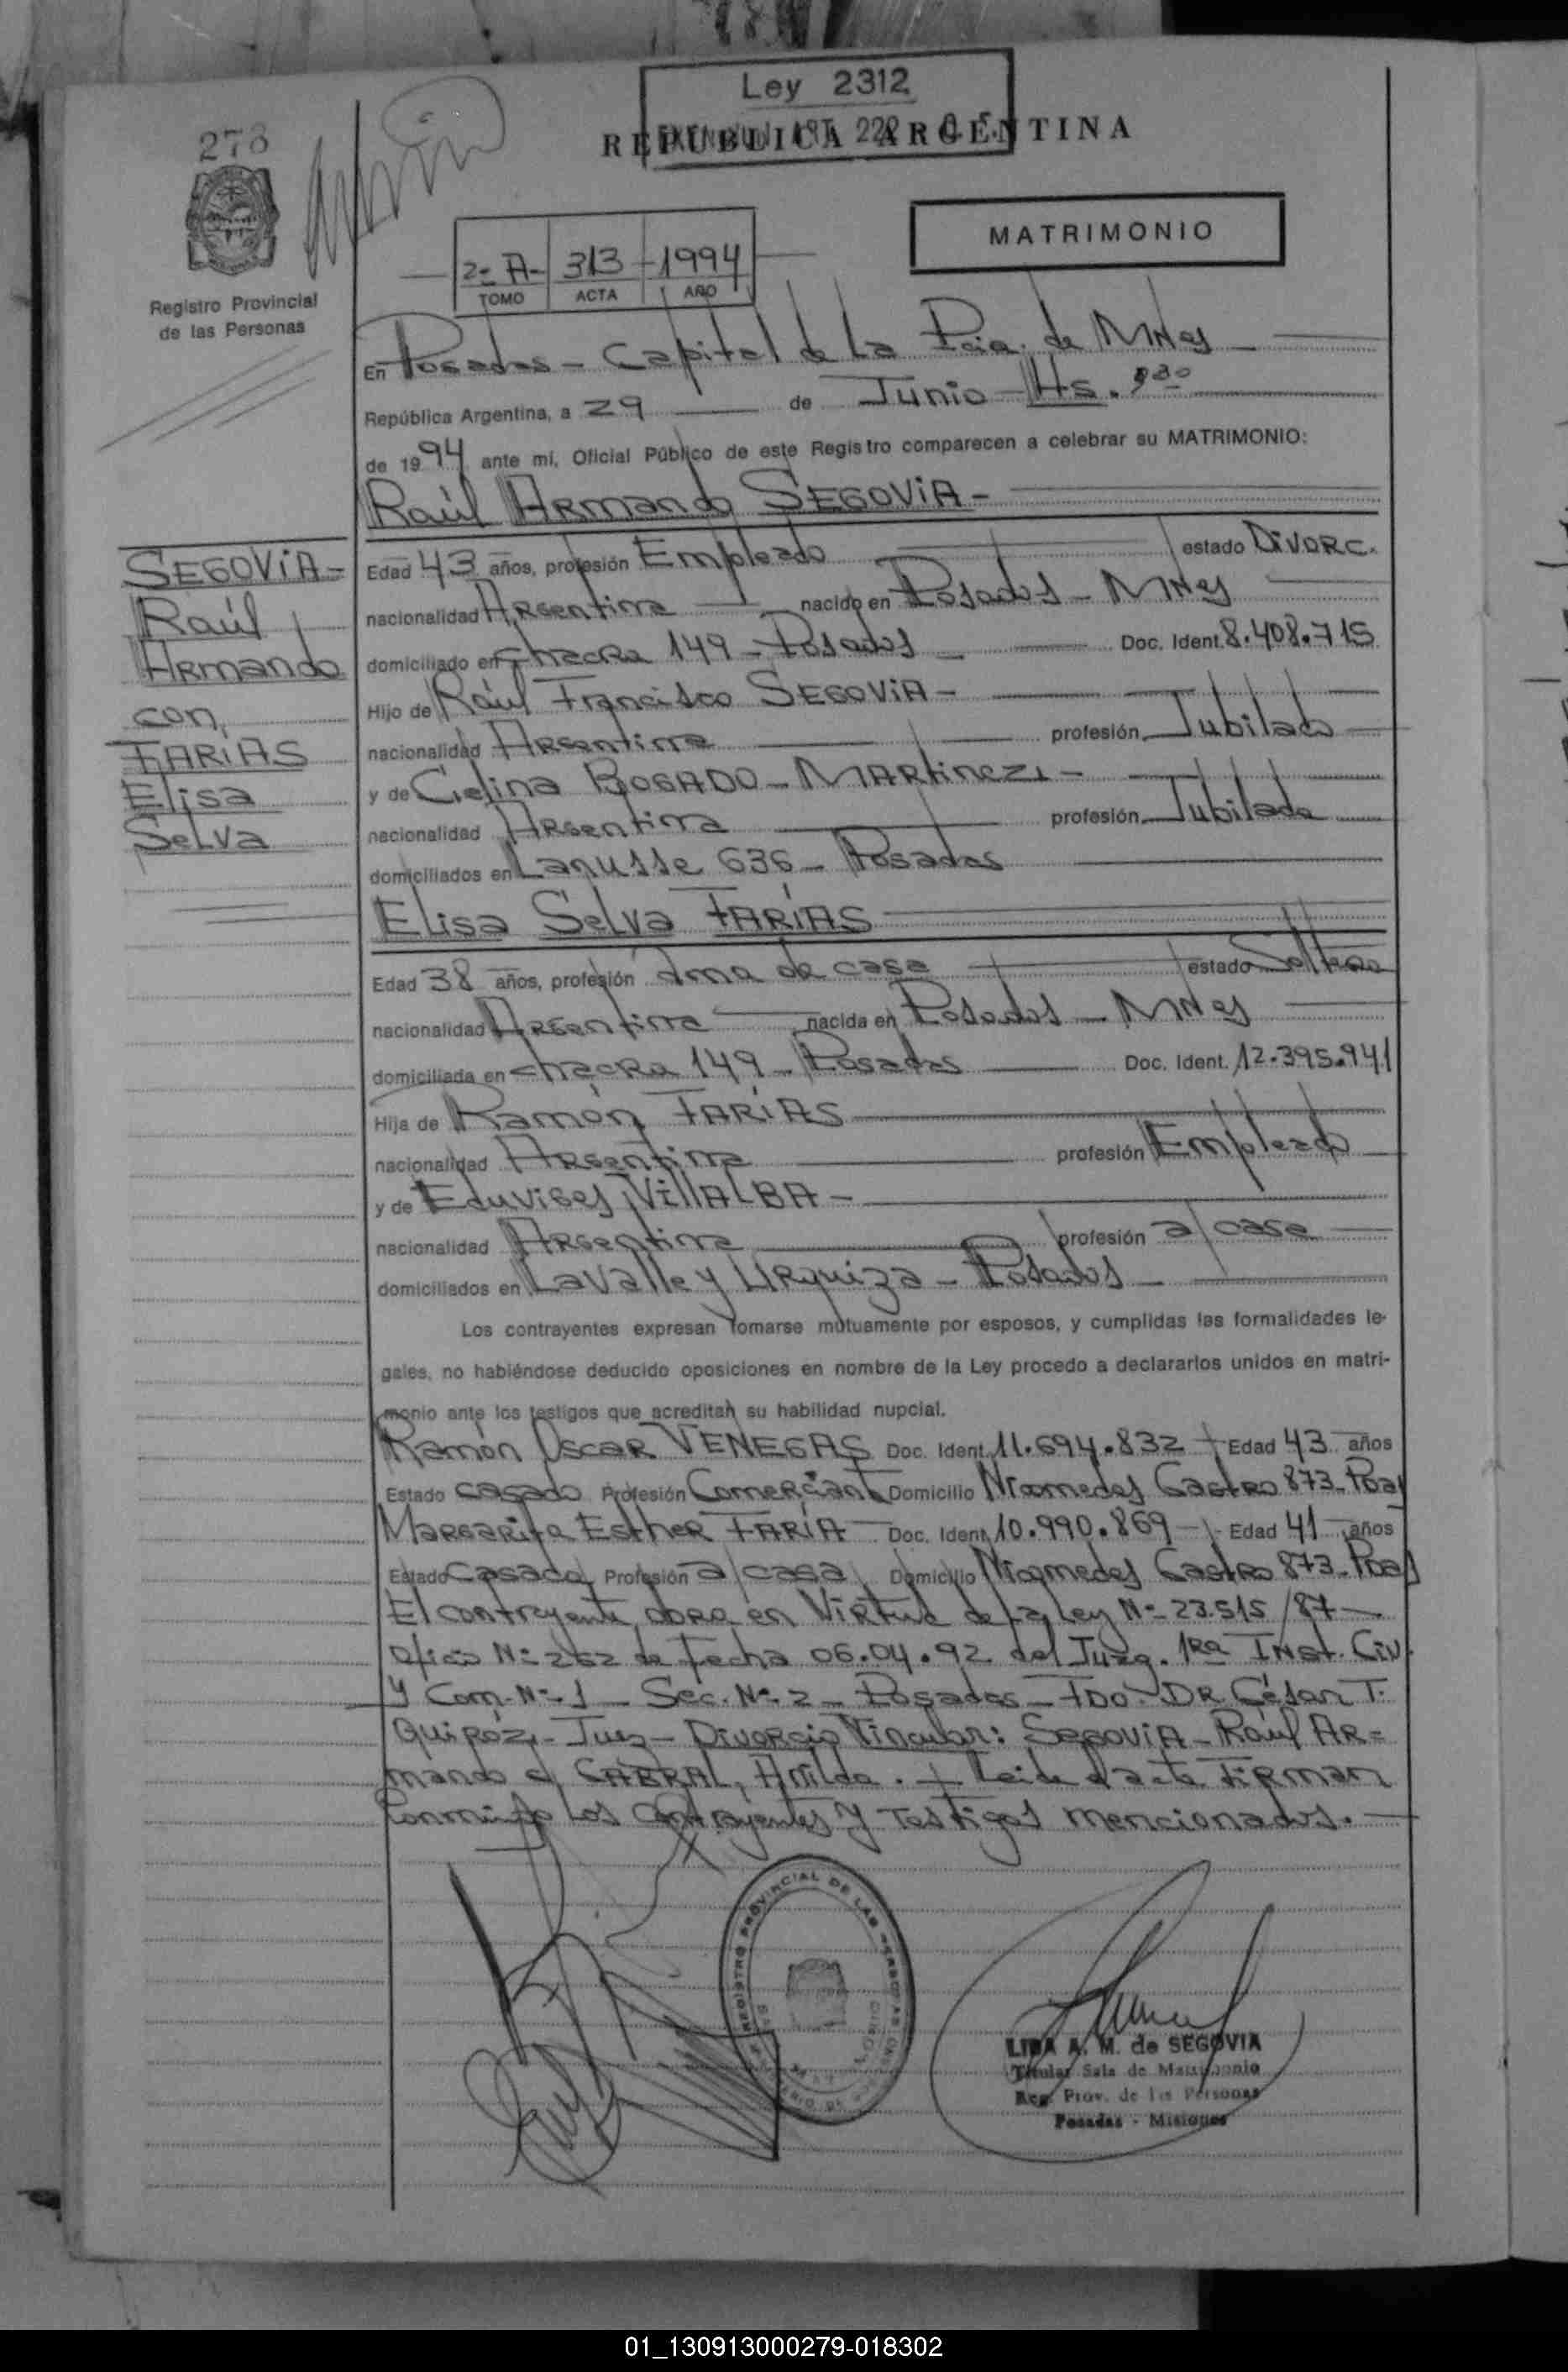 Ley 2312
REPUBLICA ARGENTINA
278
MATRIMONIO
2- A- 313 1994
TOMO ACTA AÑO
Registro Provincial
de las Personas
En Posadas - Capital de La Pcia. de MNes
República Argentina, a 29 de Junio Hs.
de 1994 ante mí, Oficial Público de este Registro comparecen a celebrar su MATRIMONIO:
Raúl Armando SEGOVIA -
SEGOVIA -
Raúl
Armando
con
FARIAS
Elisa
Selva
Edad 43 años, profesión Empleado estado DIVORC.
nacionalidad Argentina nacido en Posadas - MNes
domiciliado en chacra 149 - Posadas Doc. Ident. 8.408.715
Hijo de Raúl Francisco SEGOVIA -
nacionalidad Argentina profesión Jubilado
y de Celina BOGADO - MARTINEZ -
nacionalidad Argentina profesión Jubilada
domiciliados en Lanusse 636 - Posadas
Elisa Selva FARÍAS
Edad 38 años, profesión ama de casa estado Soltera
nacionalidad Argentina nacida en Posadas - MNes
domiciliada en chacra 149 - Posadas Doc. Ident. 12.395.941
Hija de Ramón FARÍAS
nacionalidad Argentina profesión Empleado
y de Eduviges VILLALBA -
nacionalidad Argentina profesión a/casa
domiciliados en Lavalle y Urquiza - Posadas -
Los contrayentes expresan tomarse mútuamente por esposos, y cumplidas las formalidades le-
gales, no habiéndose deducido oposiciones en nombre de la Ley procedo a declararlos unidos en matri-
monio ante los testigos que acreditan su habilidad nupcial.
Ramón Oscar VENEGAS Doc. Ident. 11.694.832 Edad 43 años
Estado casado Profesión Comerciante Domicilio Nicomedes Castro 873 - Pdas
Margarita Esther FARÍA Doc. Ident. 10.990.869 - Edad 41 años
Estado Casada Profesión a/casa Domicilio Nicomedes Castro 873 - Pdas
El contrayente obra en Virtud de la Ley N= 23.515/87 -
Oficio N= 262 de Fecha 06.04.92 del Juzg. 1Ra INst. Civ.
y Com. N=1 - Sec. N=2 - Posadas - FDO. DR. César T.
Quiróz - Juez - Divorcio Vincular: Segovia - Raúl Ar=
mando c/ CABRAL, . Leida el acta Firman
Conmigo los Contrayentes y Testigos mencionados. -
REGISTRO PROVINCIAL DE LAS PERSONAS
LIDA A. M. de SEGOVIA
Titular Sala de Matrimonio
Reg. Prov. de las Personas
Posadas - Misiones
01_130913000279-018302